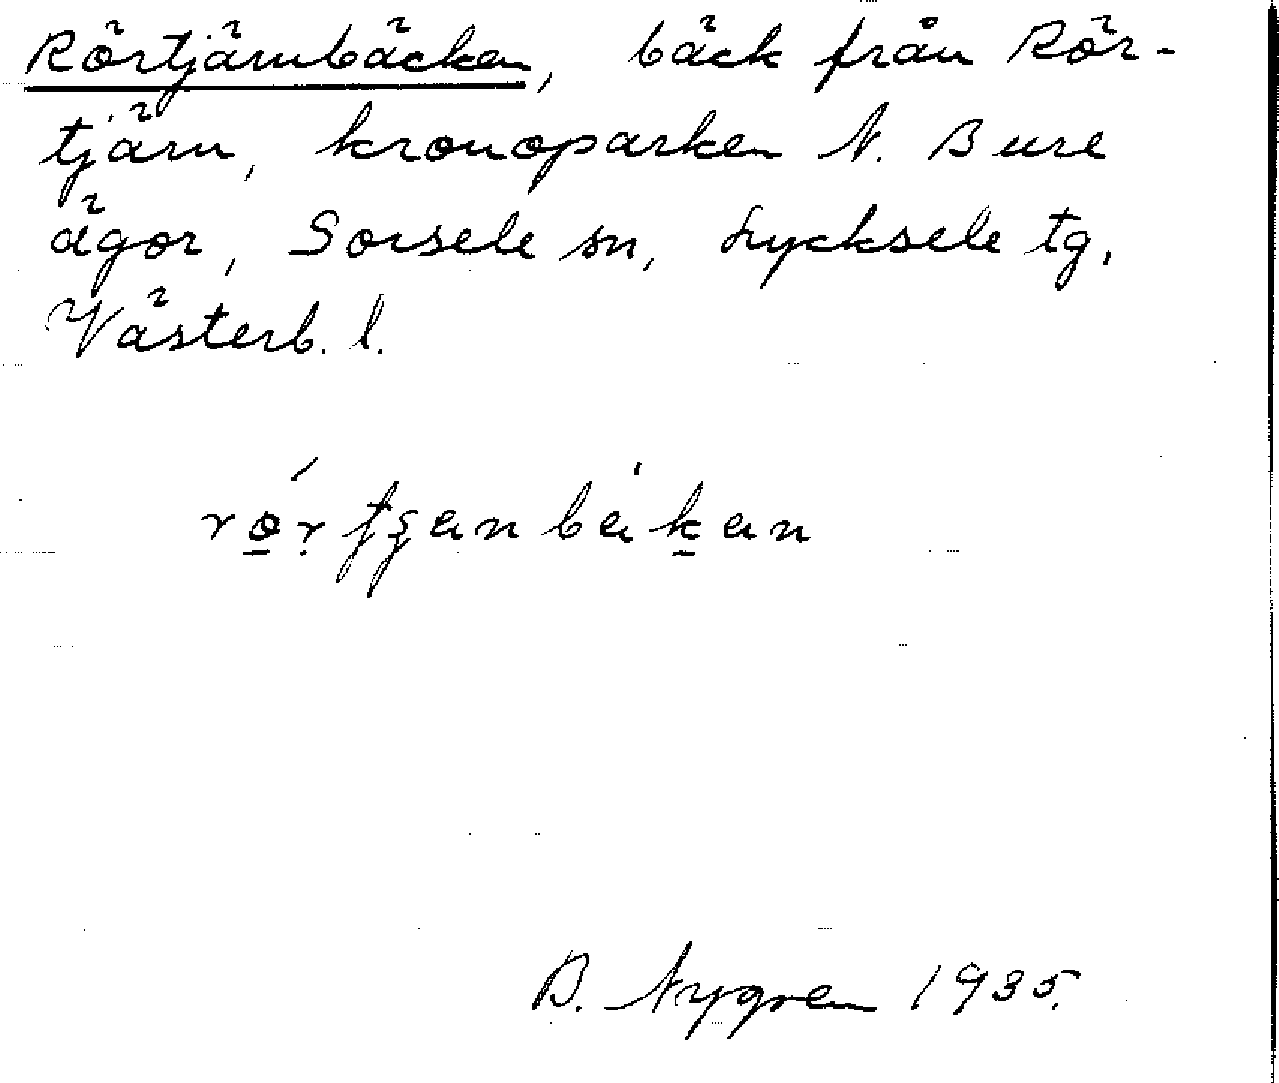 Rörtjärnbäcken, bäck från Rör-
tjärn, kronoparken N. Bure
ägor, Sorsele sn, Lycksele tg,
Västerb. l.
B. Nygren 1935.